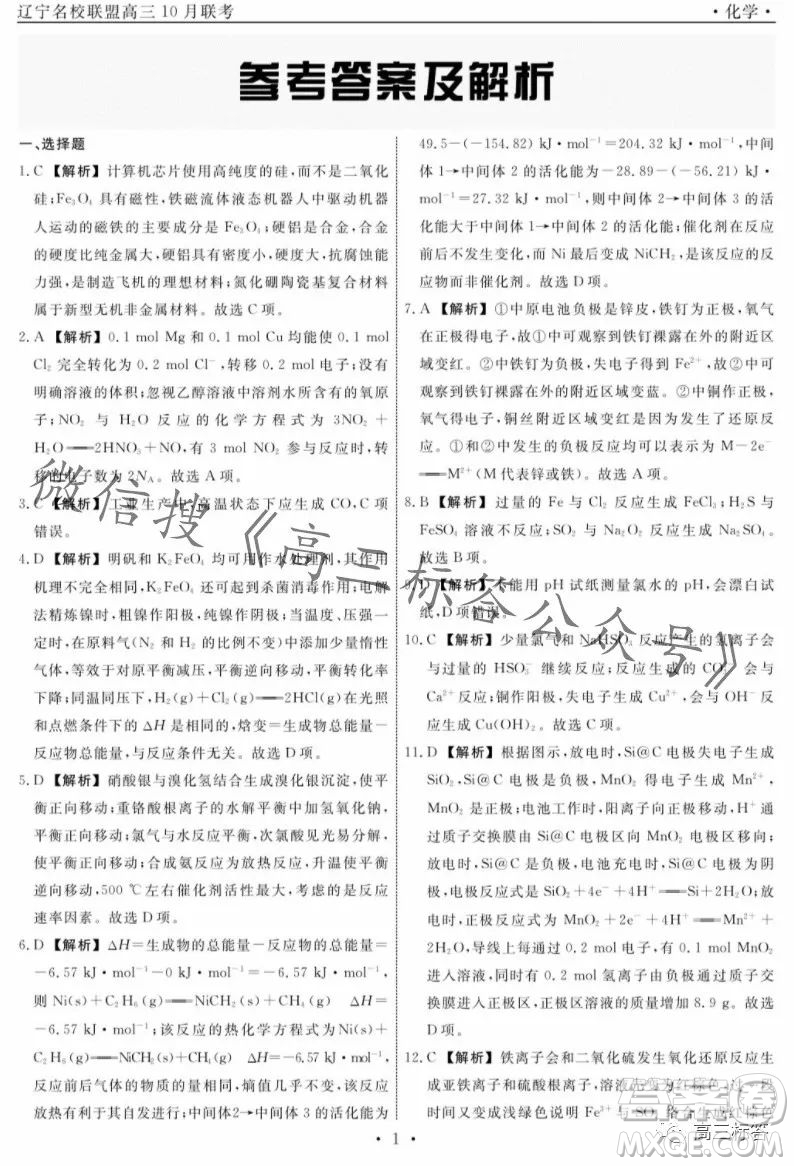 辽宁名校联盟高三10月联考
·化学·
参考答案及解析
一、选择题
1.C 【解析】计算机芯片使用高纯度的硅,而不是二氧化
硅;Fe₃O₄ 具有磁性,铁磁流体液态机器人中驱动机器
人运动的磁铁的主要成分是 Fe₃O₄;硬铝是合金,合金
的硬度比纯金属大,硬铝密度小、强度大,抗腐蚀能
力强,是制造飞机的理想材料;氮化硼陶瓷基复合材料
属于新型无机非金属材料。故选 C 项。
2.A 【解析】0.1 mol Mg 和 0.1 mol Cu 均能使 0.1 mol
Cl₂ 完全转化为 0.2 mol Cl⁻,转移 0.2 mol 电子;没有
明确溶液的体积;忽视乙醇溶液中溶剂水所含有的氧原
子;NO₂ 与 H₂O 反应的化学方程式为 3NO₂ +
H₂O══2HNO₃+NO,有 3 mol NO₂ 参与反应时,转
移的电子数为 2Nₐ。故选 A 项。
3.C 【解析】工业生产中,高温状态下应生成 CO,C 项
错误。
4.D 【解析】明矾和 K₂FeO₄ 均可用作水处理剂,其作用
机理不完全相同,K₂FeO₄ 还可起到杀菌消毒作用;电解
法精炼镍时,粗镍作阳极,纯镍作阴极;当温度、压强一
定时,在原料气(N₂ 和 H₂ 的比例不变)中添加少量惰性
气体,等效于对原平衡减压,平衡逆向移动,平衡转化率
下降;同温同压下,H₂(g)+Cl₂(g)══2HCl(g)在光照
和点燃条件下的 ΔH 是相同的,焓变=生成物总能量-
反应物总能量,与反应条件无关。故选 D 项。
5.D 【解析】硝酸银与溴化氢结合生成溴化银沉淀,使平
衡正向移动;重铬酸根离子的水解平衡中加氢氧化钠,
平衡正向移动;氯气与水反应平衡,次氯酸见光易分解,
使平衡正向移动;合成氨反应为放热反应,升温使平衡
逆向移动,500 ℃左右催化剂活性最大,考虑的是反应
速率因素。故选 D 项。
6.D 【解析】ΔH=生成物的总能量-反应物的总能量=
-6.57 kJ·mol⁻¹-0 kJ·mol⁻¹=-6.57 kJ·mol⁻¹,
则 Ni(s)+C₂H₆(g)══NiCH₂(s)+CH₄(g) ΔH=
-6.57 kJ·mol⁻¹;该反应的热化学方程式为Ni(s)+
C₂H₆(g)══NiCH₂(s)+CH₄(g) ΔH=-6.57 kJ·mol⁻¹,
反应前后气体的物质的量相同,熵值几乎不变,因此该
反应体系的有利因素为其自发进行;中间体2→中间体3的活化能为
49.5-(-154.82) kJ·mol⁻¹=204.32 kJ·mol⁻¹,中间
体 1→中间体 2 的活化能为-28.89-(-56.21) kJ·
mol⁻¹=27.32 kJ·mol⁻¹,则中间体 2→中间体 3 的活
化能大于中间体 1→中间体 2 的活化能;催化剂在反应
前后不发生变化,而 Ni 最后变成 NiCH₂,是该反应的反
应物而非催化剂。故选 D 项。
7.A 【解析】①中原电池负极是锌皮,铁钉为正极,氧气
在正极得电子,故①中可观察到铁钉裸露在外的附近区
域变红。②中铁钉为负极,失电子得到 Fe²⁺,故②中可
观察到铁钉裸露在外的附近区域变蓝。②中铜作正极,
得电子,铜丝附近区域变红是因为发生了还原反
应。①与②的负极反应均可以表示为 M-2e⁻
══M²⁺(M 代表锌或铁)。故选 A 项。
8.B 【解析】过量的 Fe 与 Cl₂ 反应生成 FeCl₃;H₂S 与
FeSO₄ 溶液不反应;SO₂ 与 Na₂O₂ 反应生成 Na₂SO₄。
故选 B 项。
9.D 【解析】不能用 pH 试纸测量氯水的 pH,会漂白试
纸,D 项错误。
10.C 【解析】少量氯气和 NaHSO₃ 反应产生的氢离子会
与过量的 HSO₃⁻ 继续反应;反应生成的 CO₃²⁻ 会与
Ca²⁺反应;铜作阳极,失电子生成 Cu²⁺,会与 OH⁻反
应生成 Cu(OH)₂。故选 C 项。
11.D 【解析】根据图示,放电时,Si@C 电极失电子生成
SiO₂,Si@C 电极为负极,MnO₂ 得电子生成 Mn²⁺,
MnO₂ 是正极;电池工作时,阳离子向正极移动,故 H⁺
通过质子交换膜由 Si@C 电极区向 MnO₂ 电极区移向;
放电时,Si@C 为负极,电池充电时,Si@C 电极为阴
极,电极反应式是 SiO₂+4e⁻+4H⁺══Si+2H₂O;放电
时,正极反应式为 MnO₂+2e⁻+4H⁺══Mn²⁺+
2H₂O,导线上每通过 0.2 mol 电子,有 0.1 mol MnO₂
进入溶液,同时有 0.2 mol 氢离子由负极区通过质子
交换膜进入正极区,正极区溶液的质量增加 8.9 g。故选
D 项。
12.C 【解析】铁离子会和二氧化硫发生氧化还原反应生
成亚铁离子和硫酸根离子,溶液先变为红棕色,过一段
时间又变成浅绿色说明 Fe³⁺与 SO₂ 络合生成红棕色
微信搜《高三标答公众号》
高三标答
· 1 ·